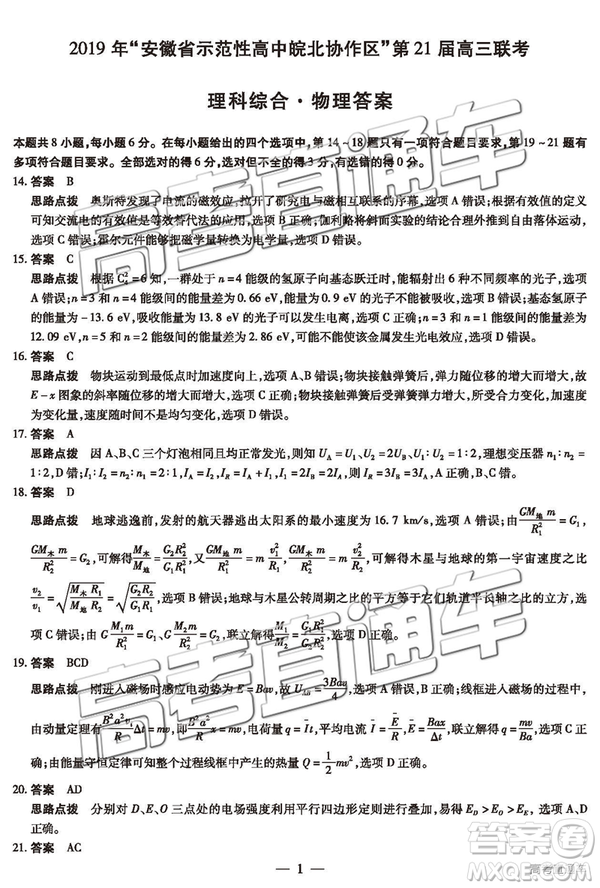 2019 年“安徽省示范性高中皖北协作区”第 21 届高三联考
理科综合·物理答案
本题共 8 小题,每小题 6 分。在每小题给出的四个选项中,第 14~18 题只有一项符合题目要求,第 19~21 题有
多项符合题目要求。全部选对的得 6 分,选对但不全的得 3 分,有选错的得 0 分。
14. 答案 B
思路点拨 奥斯特发现了电流的磁效应,拉开了研究电与磁相互联系的序幕,选项 A 错误;有效值的定义
可知交流电的有效值是等效替代法的应用,选项 B 正确;伽利略将斜面实验的结论合理外推到自由落体运动,
选项 C 错误;霍尔元件能够把磁学量转换为电学量,选项 D 错误。
15. 答案 C
思路点拨 根据 C₄² = 6 知,一群处于 n = 4 能级的氢原子向基态跃迁时,能辐射出 6 种不同频率的光子,选
项 A 错误;n = 3 和 n = 4 能级间的能量差为 0.66 eV,能量为 0.9 eV 的光子不能被吸收,选项 B 错误;基态的
能量为 -13.6 eV,吸收能量为 13.8 eV 的光子能发生电离,选项 C 正确;n = 1 和 n = 3 能级的能量差为
12.09 eV,n = 5 和 n = 2 能级的能量差为 2.86 eV,可能不能使该金属发生光电效应,选项 D 错误。
16. 答案 C
思路点拨 物块运动到最低点时加速度向上,选项 A、B 错误;物块接触弹簧后,弹力随位移的增大而增大,故
E - x 图象的斜率随位移的增大而增大,选项 C 正确;物块接触弹簧后受弹簧弹力,所受合力变化,加速度
为变量,速度随时间不是均匀变化,选项 D 错误。
17. 答案 A
思路点拨 因 A、B、C 三个灯泡相同且均正常发光,则知 U_A = U₁、U₂ = 2U₁、U₁:U₂ = 1:2,理想变压器 n₁:n₂ =
1:2,而 I₁:I₂ = n₂:n₁ = 2:1,I_A = I₂,I₁ = I_A + I_L,I₁ = 2I₂,故 I_L = I₂ = I_A,选项 A 正确。
18. 答案 D
思路点拨 地球逃逸前,发射的航天器逃出太阳系的最小速度为 16.7 km/s,选项 A 错误;由 GM地m/R₁² = G₁,
GM木m/R₂² = G₂,可解得 M木/M地 = G₂R₂²/G₁R₁²,选项 B 错误;再由 GM地m/R₁² = m v₁²/R₁、GM木m/R₂² = m v₂²/R₂,可解得木星与地球的第一宇宙速度之比
v₂/v₁ = √(M木R₁/M地R₂) = √(G₂R₂/G₁R₁),选项 C 错误;地球与木星公转周期之比的平方等于它们轨道半长轴之比的立方,选
项 D 正确。
19. 答案 BCD
思路点拨 刚进入磁场时感应电动势为 E = Bav,故 = 3Bav/4,选项 A 错误;线框进入磁场的过程中,
由动量定理有 B²a²v/R Δt = mv,即 B²a³/R = mv,选项 B 正确;电荷量 q = It,平均电流 I = E/R,E = Bax/Δt,联立解得 q =
,选项 C 正确;由能量守恒定律可得线框中产生的热量 Q = ½mv²,选项 D 正确。
20. 答案 AD
思路点拨 分别对 D、E、O 三点处的电场强度利用平行四边形定则进行叠加,易得 E_D > E_O > E_E,选项 A、
D 正确。
21. 答案 AC
— 1 —
高考直通车
答案圈